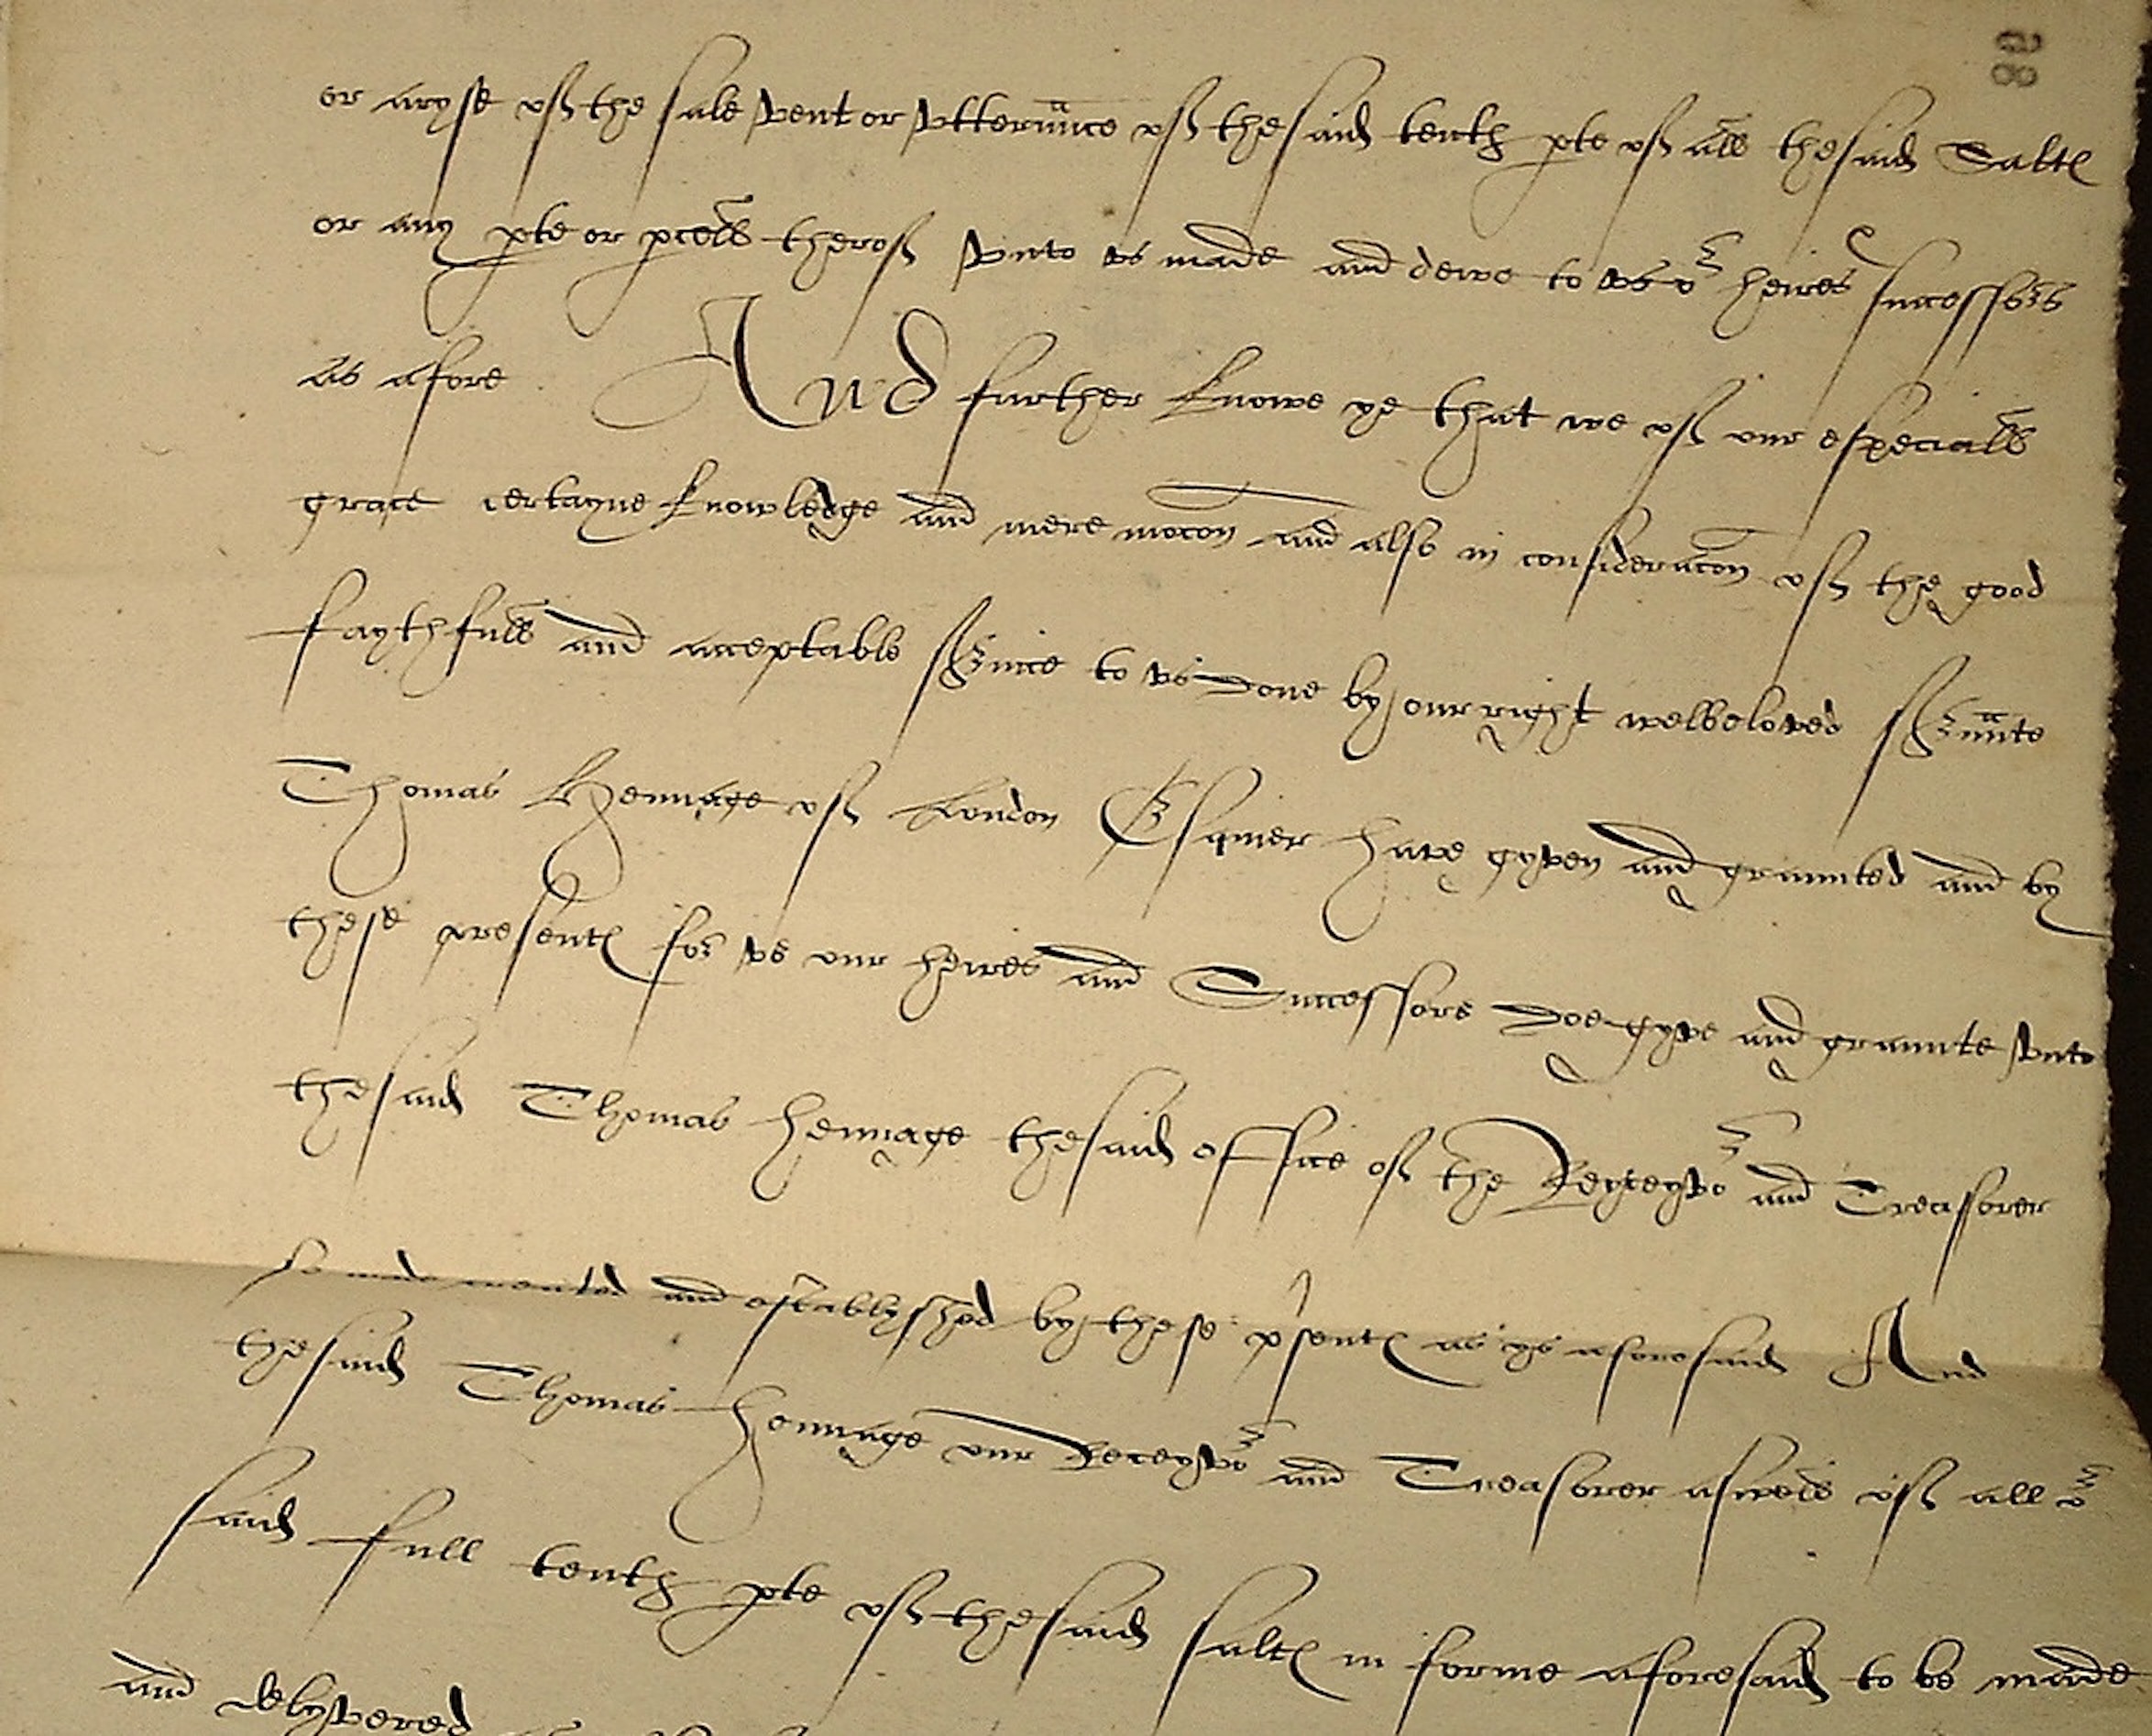 68
or aryse of the sale vent or vtterānce of the said tenth pte of all the said Saltℓ
or any pte or pcell therof vnto vs made and dewe to vs or heires successors
as afore And further knowe ye that we of our especiall
grace certayne knowledge and mere mocon and also in consideracon of the good
faythfull and acceptable svice to vs done by our right welbeloved svante
Thomas Hennage of London Esquier have gyven and graunted and by
these presentℓ for vs our heires and Successors doe gyve and graunte vnto
the said Thomas hennage the said office of the Receyvor and Treasorer
so made created and establyshed by these psentℓ as ys aforesaid And
the said Thomas hennage our Receyvor and Treasorer aswell of all or
said full tenth pte of the said saltℓ in forme aforesaid to be made
and delyvered